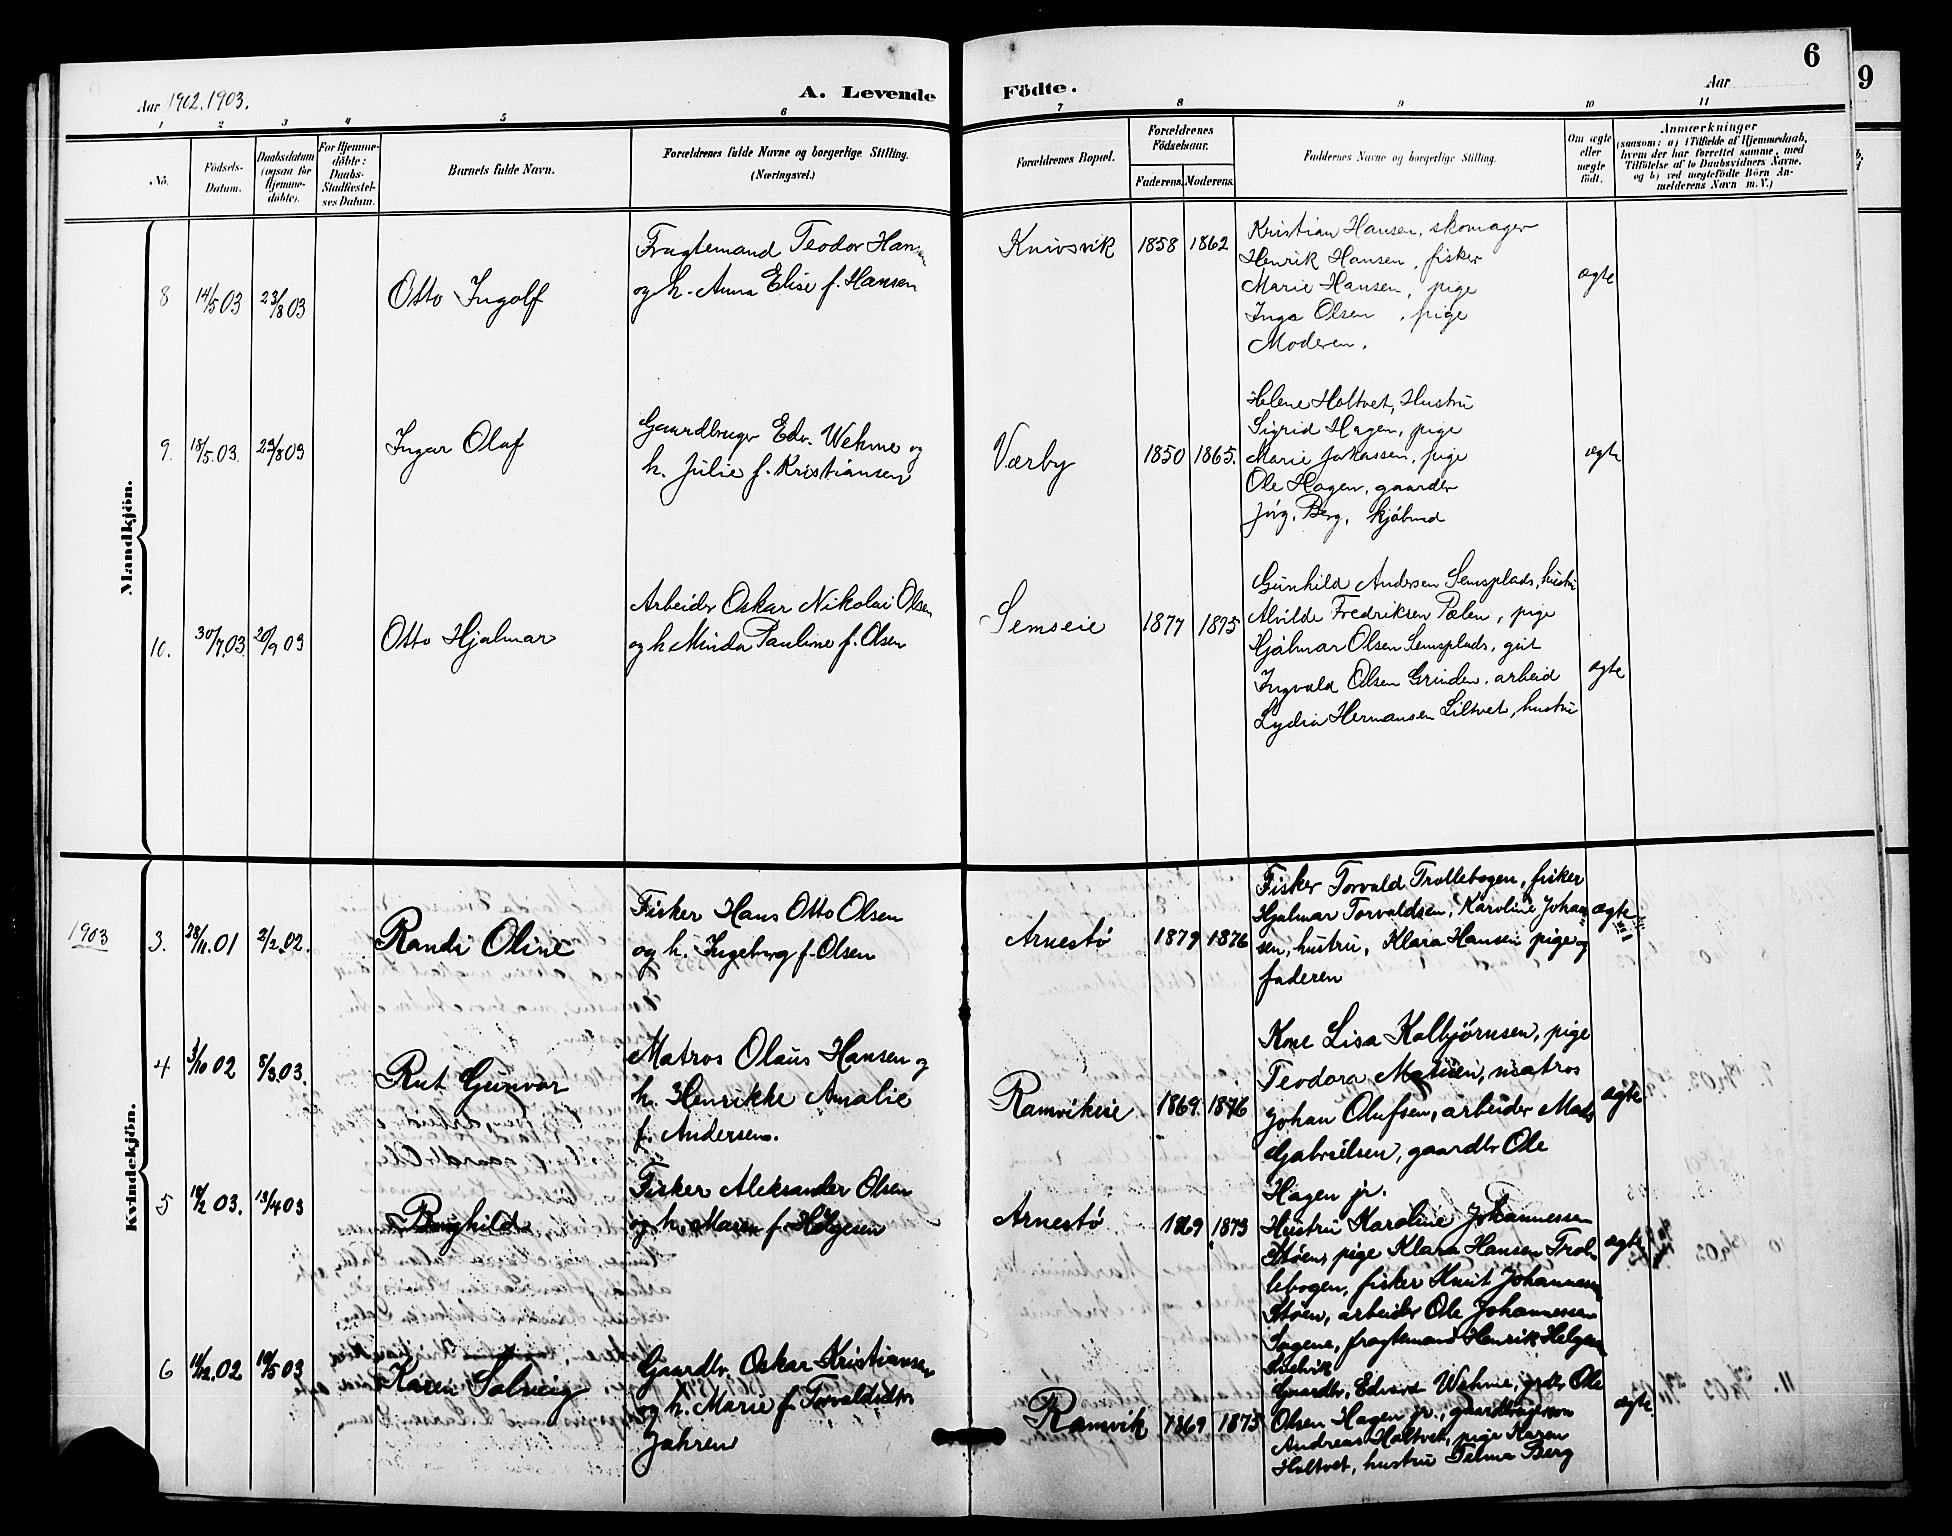 Aar 1902, 1903.
A. Levende
Födte.
Aar
6
9
1 2 3 4 5 6 7 8 9 10 11
No.
Födsels-
Datum.
Daabsdatum
(ogsaa for
Hjemme-
döbte).
For Hjemme-
döbte:
Daabs-
Stadfæstel-
ses Datum.
Barnets fulde Navn.
Forældrenes fulde Navne og borgerlige Stilling.
(Næringsvei.)
Forældrenes Bopæl.
Forældrenes
Födselsaar.
Faderens. Moderens.
Faddernes Navne og borgerlige Stilling.
Om ægte
eller
uægte
födt.
Anmærkninger
(saasom: a) i Tilfælde af Hjemmedaab,
hvem der har forrettet samme, med
Tilföielse af to Daabsvidners Navne,
og b) ved uægtefödte Börn An-
melderens Navn m. V.)
Mandkjön.
8 14/5 03 23/8 03
Otto Ingolf
Fragtemand Teodor Hansen
og h. Anna Elise f. Hansen
Knivsvik 1858 1862
Kristian Hansen, skomager
Henrik Hansen, fisker
Marie Hansen, pige
Inga Olsen, pige
Moderen.
ægte
9. 18/5. 03. 23/8 03
Ingar Olaf
Gaardbruger Edv. Wehme og
h. Julie f. Kristiansen
Værby 1850 1865.
Helene Holtvet, Hustru
Sigrid Hagen, pige
Marie Johassen, pige
Ole Hagen, gaardbr
Jörg. Berg, kjöbmd
ægte
10. 30/7. 03. 20/9 03
Otto Hjalmar
Arbeider Oskar Nikolai Olsen
og h Minda Pauline f. Olsen
Semseie 1877 1875
Gunhild Andersen Semsplads, hustru
Alvilde Fredriksen Pælen, pige
Hjalmar Olsen Semsplads, gut
Ingvald Olsen Grinden, arbeid
Lydia Hermansen Siltvet, hustru
ægte
Kvindekjön.
1903
3. 28/11. 01 2/2. 02.
Randi Oline
Fisker Hans Otto Olsen
og h. Ingeborg f. Olsen
Arnestö 1879 1876
Fisker Torvald Trollebogen, fisker
Hjalmar Torvaldsen, Karoline Johan
sen, hustru, Klara Hansen pige og
faderen
ægte
4 3/10 02 8/3. 03.
Rut Gunvor
Matros Olaus Hansen og
h. Henrikke Amalie
f. Andersen.
Ramvikeie 1869. 1876
Kone Lisa Kolbjörnsen, pige
Teodora, matros
Johan Olufsen, arbeider Mads
Gabrielsen, gaardbr Ole
Hagen jr.
ægte
5 03. 13/4 03
Fisker Aleksander Olsen
og h. Maren f. Helgesen
Arnestö 1869 1873
Hustru Karoline Johannessen
Stöen, pige Klara Hansen Trol-
lebogen, fisker Knut Johannessen
Stöen, arbeider Ole Johannessen
Sagene, fragtemand Henrik Helgesen
ægte
6 02 03
Karen Solveig
Gaardbr. Oskar Kristiansen
og h. Marie f. Torvaldsdtr
Jahren
Ramvik 1869 1873
Gaardbr. Edvard Wehme, grdbr Ole
Olsen Hagen jr., gaardbruger
Andreas Holtvet, pige Karen
Holtvet, hustru Telma Berg
ægte.